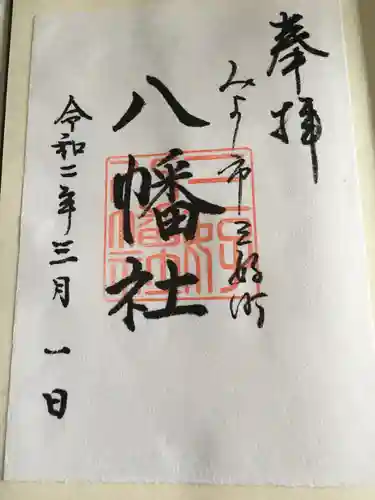 奉拝
みよし市三好町
八幡社
令和二年三月一日